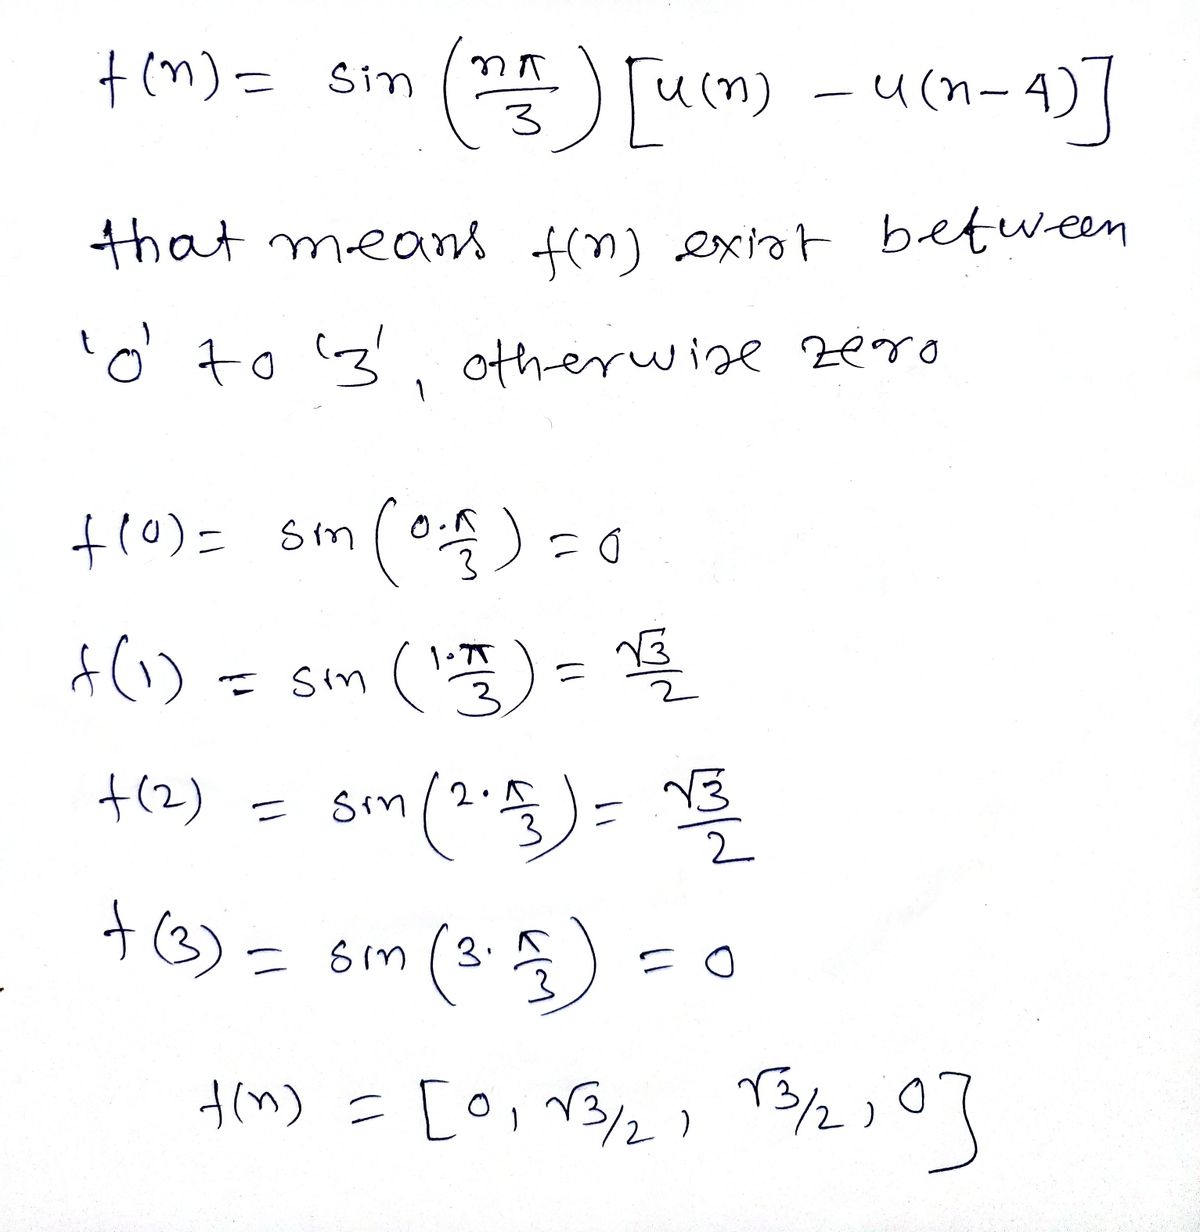 f(n) = sin (nπ/3) [u(n) - u(n-4)]
that means f(n) exist between
'0' to '3', otherwise zero
f(0) = sin (0·π/3) = 0
f(1) = sin (1·π/3) = √3/2
f(2) = sin (2·π/3) = √3/2
f(3) = sin (3·π/3) = 0
f(n) = [0, √3/2, √3/2, 0]